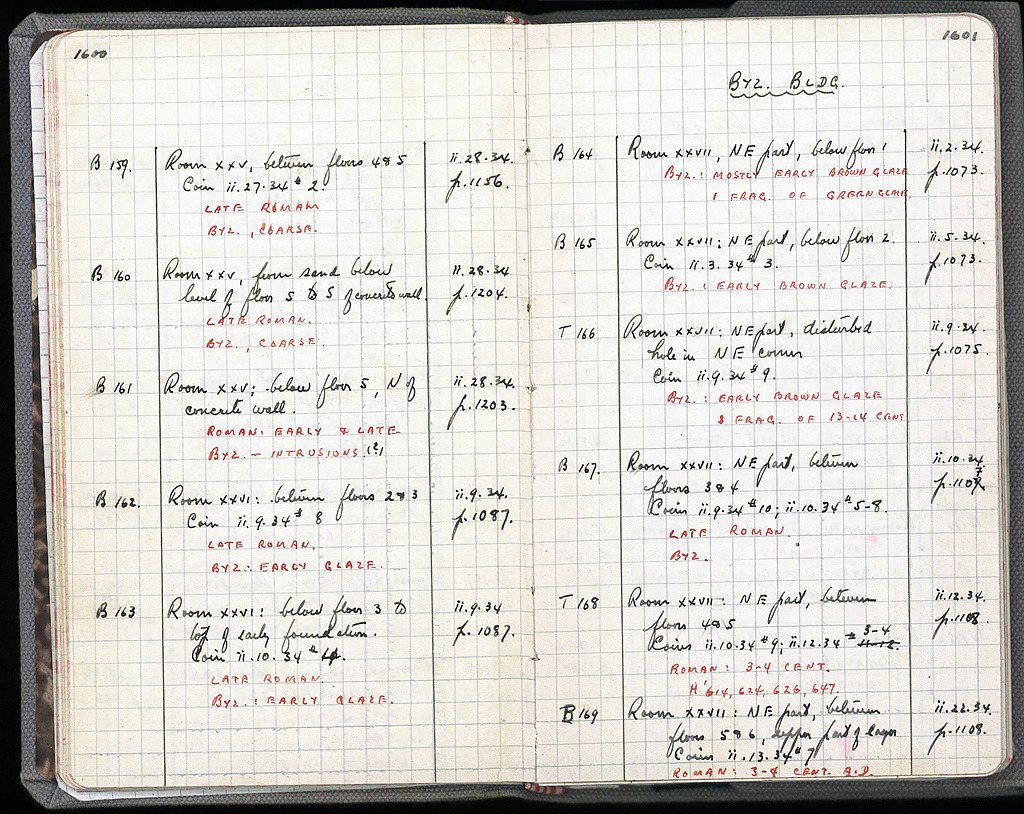 1600
B 159. Room XXV, between floors 4 & 5 ii.28.34.
Coin ii.27.34 # 2. p.1156.
LATE ROMAN
BYZ., COARSE.
B 160 Room XXV, from sand below ii.28.34
level of floor 5 to S of concrete wall. p.1204.
LATE ROMAN.
BYZ., COARSE.
B 161 Room XXV; below floor 5, N of ii.28.34.
concrete wall. p.1203.
ROMAN: EARLY & LATE
BYZ. – INTRUSIONS (?)
B 162. Room XXVI: between floors 2 & 3 ii.9.34.
Coin ii.9.34 # 8 p.1087.
LATE ROMAN.
BYZ.: EARLY GLAZE.
B 163 Room XXVI: below floor 3 to ii.9.34
top of early foundation. p.1087.
Coin ii.10.34 #
LATE ROMAN.
BYZ.: EARLY GLAZE.
1601
BYZ. BLDG.
B 164 Room XXVII, NE part, below floor 1 ii.2.34.
BYZ.: MOSTLY EARLY BROWN GLAZE p.1073.
1 FRAG. OF GREEN GLAZE
B 165 Room XXVII; NE part, below floor 2. ii.5.34.
Coin ii.3.34 # 3. p.1073.
BYZ: EARLY BROWN GLAZE.
T 166 Room XXVII: NE part, disturbed ii.9.34.
hole in NE corner p.1075.
Coin ii.9.34 # 9.
BYZ.: EARLY BROWN GLAZE
FRAG. OF 13-14 CENT
B 167. Room XXVII: NE part, between ii.10.34
floors 3 & 4 p.1107
Coins ii.9.34 # 10; ii.10.34 # 5-8.
LATE ROMAN.
BYZ.
T 168 Room XXVII: NE part, between ii.12.34.
floors 4 & 5 p.1108.
Coins ii.10.34 # 9; ii.12.34 # 3-4 11-12.
ROMAN: 3-4 CENT.
H' 614, 624, 626, 647.
B 169 Room XXVII: NE part, between ii.22.34.
floors 5 & 6, upper part of layer p.1108.
Coins ii.13.34 # 7
ROMAN: 3-4 CENT. A.D.